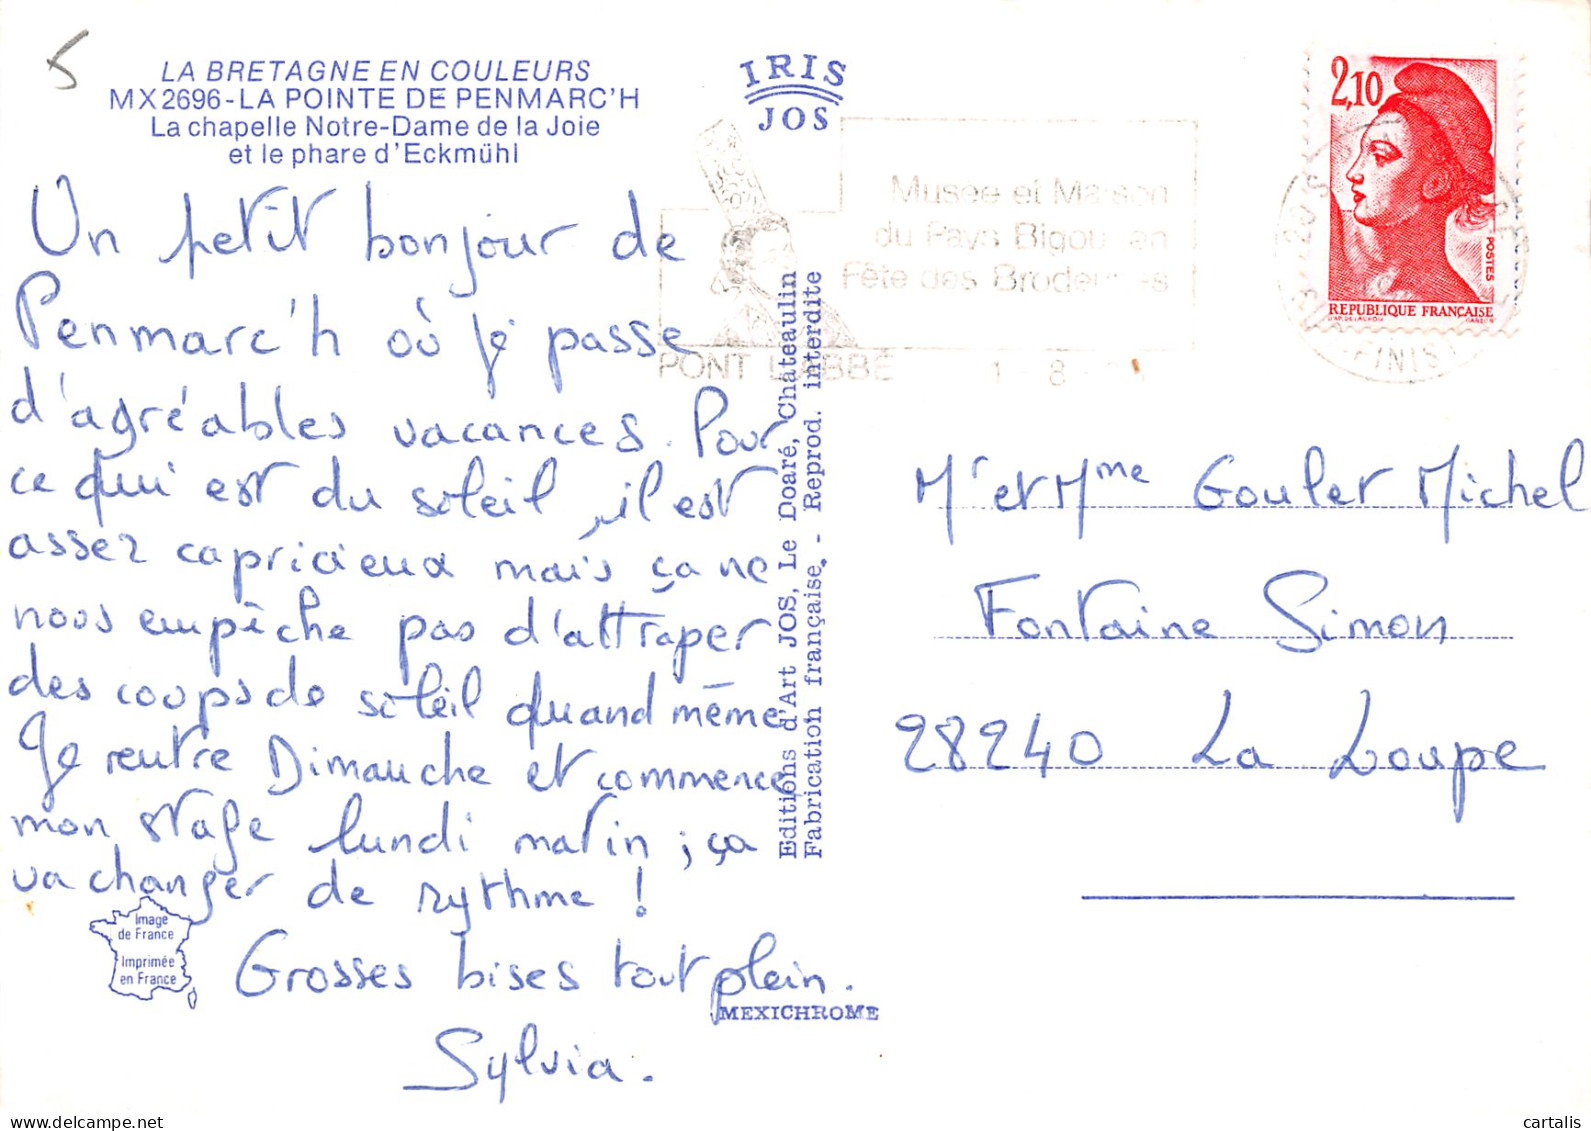 5
LA BRETAGNE EN COULEURS
MX 2696 - LA POINTE DE PENMARC'H
La chapelle Notre-Dame de la Joie
et le phare d'Eckmühl
IRIS
JOS
Un petit bonjour de
Penmarc'h où je passe
d'agréables vacances. Pour
ce qui est du soleil, il est
assez capricieux mais ça ne
nous empêche pas d'attraper
des coups de soleil quand même
Je rentre Dimanche et commence
mon stage lundi matin ; ça
va changer de rythme !
Grosses bises tout plein.
Sylvia.
Image
de France
Imprimée
en France
MEXICHROME
Editions d'Art JOS, Le Doaré, Châteaulin
Fabrication française. - Reprod. interdite
Musée et Maison
du Pays Bigouden
Fête des Brodeuses
PONT L'ABBÉ
1 - 8 -
FINIS
2,10
POSTES
REPUBLIQUE FRANÇAISE
Mr et Mme Goulet Michel
Fontaine Simon
28240 La Loupe
cartalis
www.delcampe.net